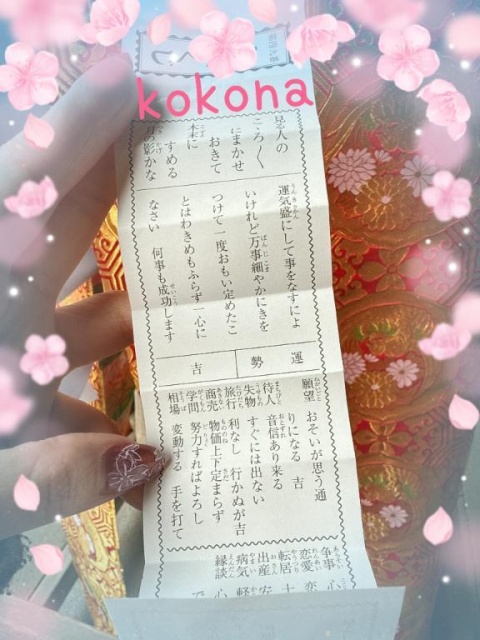 kokona
ころ〱
にまかせ
おきて
木末に
すめる
月の影かな
運気盛にして事をなすによ
いけれど万事細やかにきを
つけて一度おもい定めたこ
とはわきめもふらず一心に
なさい 何事も成功します
運勢
吉
願望 おそいが思う通
りになる 吉
待人 音信あり来る
失物 すぐには出ない
旅行 利なし 行かぬが吉
商売 物価上下定まらず
学問 努力すればよろし
相場 変動する 手を打て
争事 心
恋愛 恋
転居 十
出産 安
病気 軽
縁談 心
で